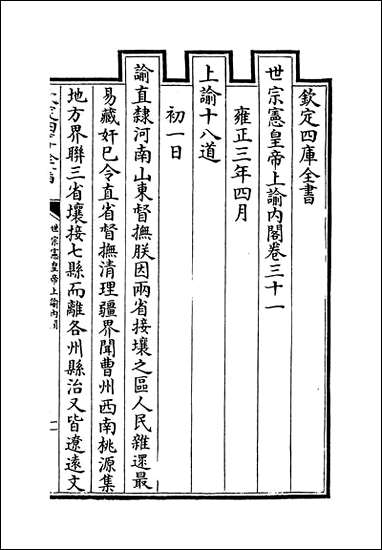 欽定四庫全書
世宗憲皇帝上諭內閣卷三十一
雍正三年四月
上諭十八道
初一日
諭直隸河南山東督撫朕因兩省接壤之區人民雜遝最
易藏奸已令直省督撫清理疆界聞曹州西南桃源集
地方界聯三省壤接七縣而離各州縣治又皆遼遠文
世宗憲皇帝上諭內閣